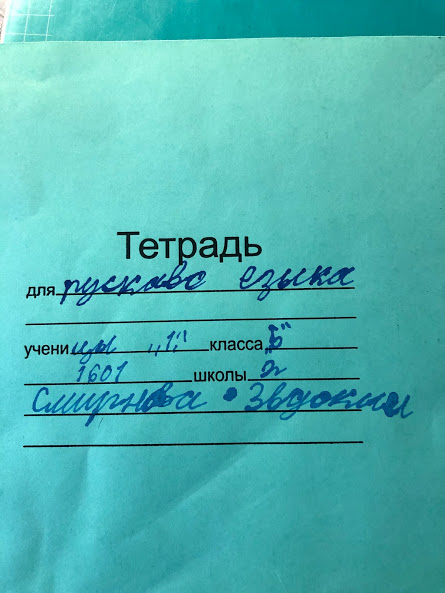 Тетрадь
для рускава езыка
ученицы „1" класса „Б"
1601 школы
Смирнова Звдокии